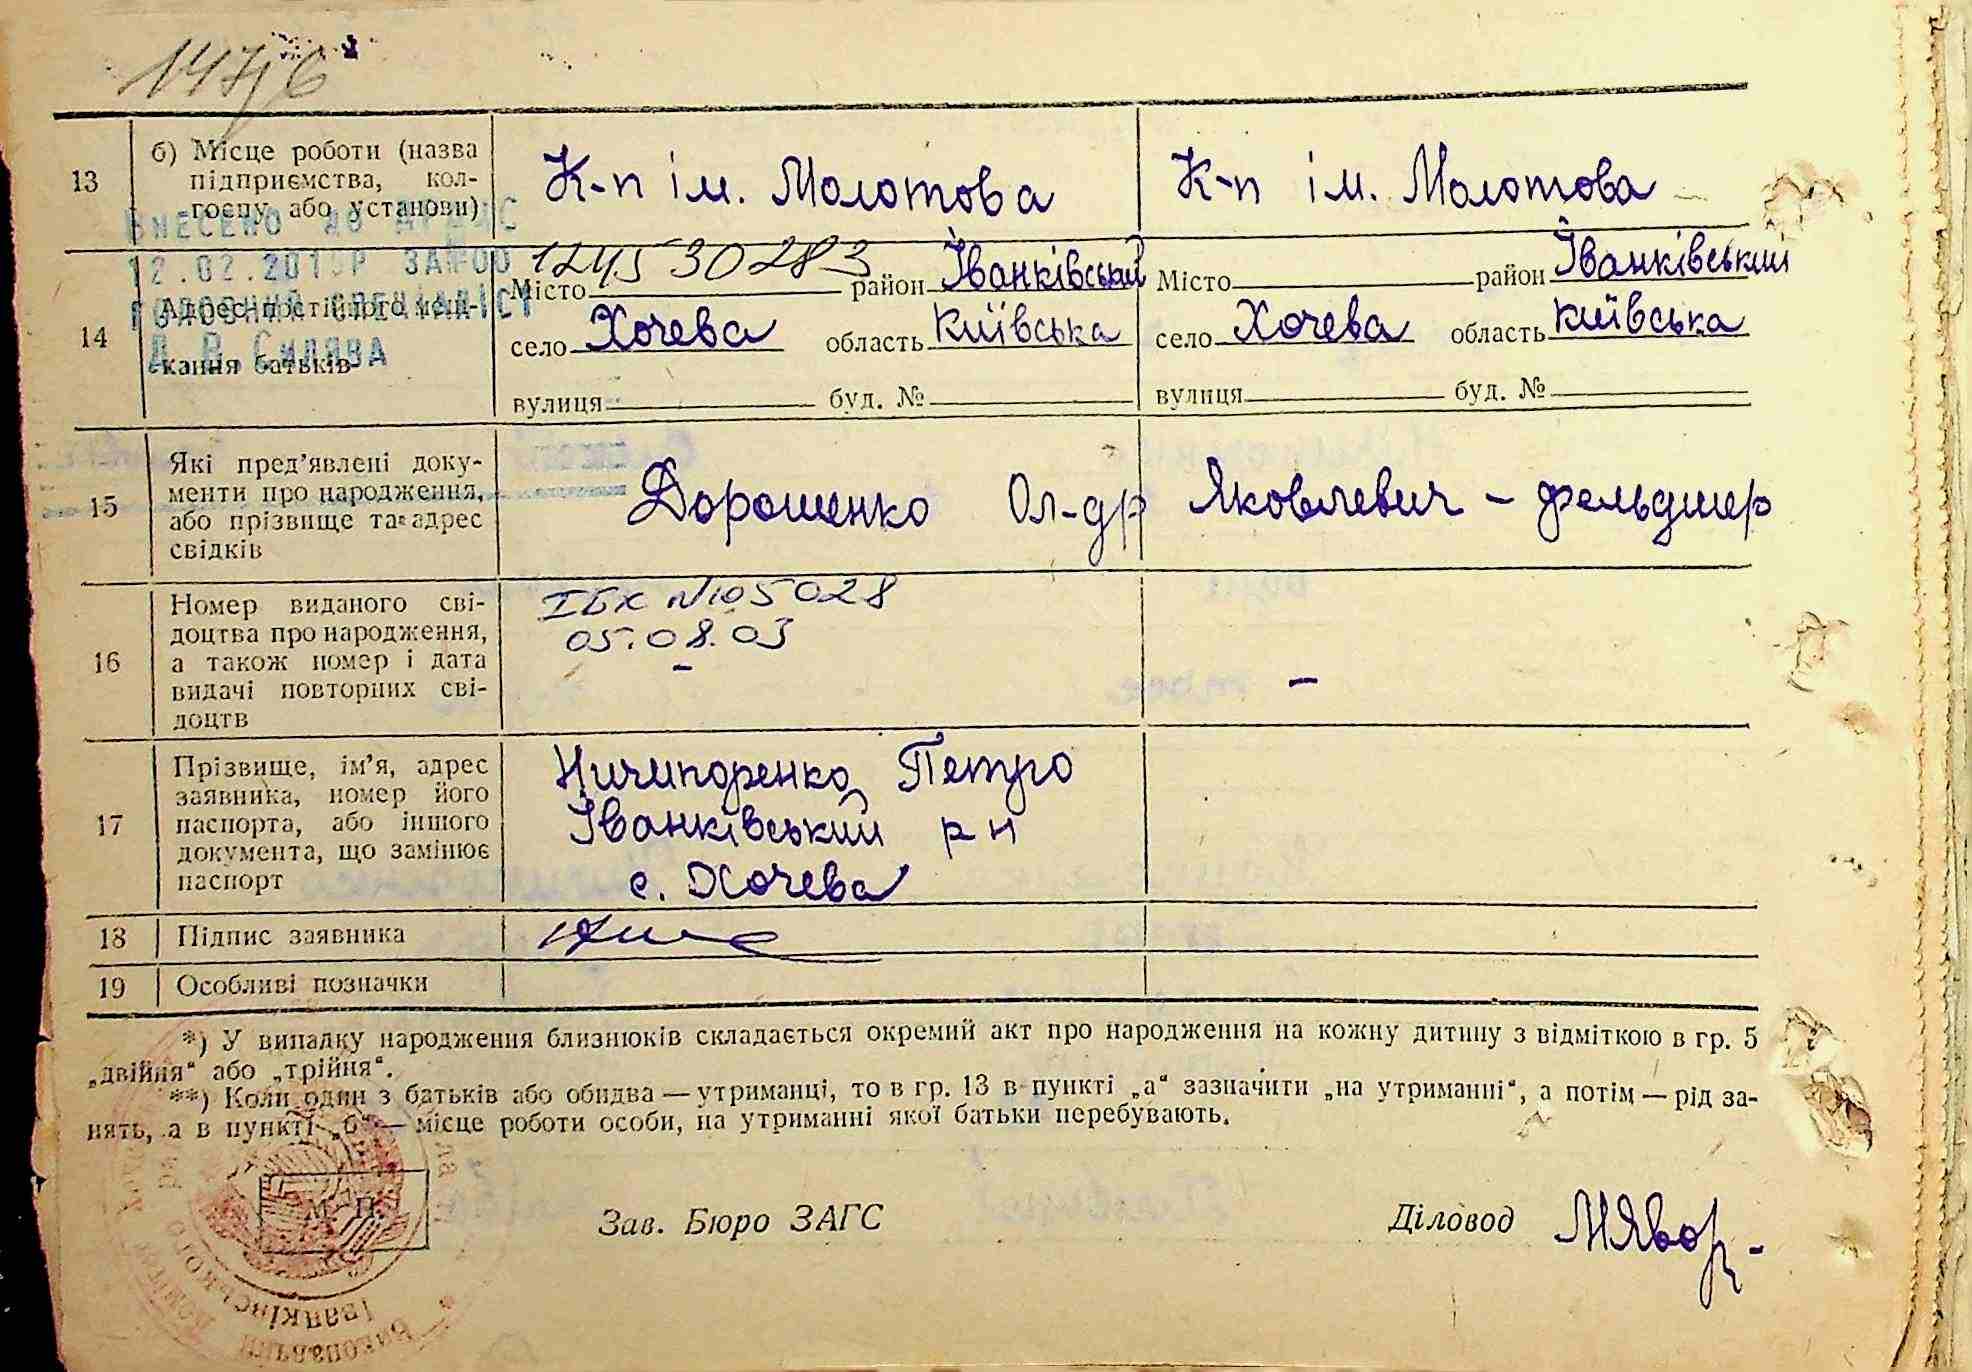 13
б) Місце роботи (назва
підприємства, кол-
госпу або установи)
К-п ім. Молотова
К-п ім. Молотова
Внесено до ДРАЦС
12.02.201 р за №00124530283
Головний спеціаліст
Силява
14
Адрес постійного меш-
кання батьків
Місто район Іванківський
село Хочева область Київська
вулиця буд. №
Місто район Іванківський
село Хочева область Київська
вулиця буд. №
15
Які пред'явлені доку-
менти про народження,
або прізвище та адрес
свідків
Дорошенко Ол-др Яковлевич - фельдшер
16
Номер виданого сві-
доцтва про народження,
а також номер і дата
видачі повторних сві-
доцтв
ІБК №105028
05.08.03
-
-
17
Прізвище, ім'я, адрес
заявника, номер його
паспорта, або іншого
документа, що замінює
паспорт
Ничипоренко Петро
Іванківський р н
с. Хочева
18
Підпис заявника
19
Особливі позначки
*) У випадку народження близнюків складається окремий акт про народження на кожну дитину з відміткою в гр. 5
„двійня“ або „трійня“.
**) Коли один з батьків або обидва — утриманці, то в гр. 13 в пункті „а“ зазначити „на утриманні“, а потім — рід за-
нять, а в пункті „б“ — місце роботи особи, на утриманні якої батьки перебувають.
М. П.
Зав. Бюро ЗАГС
Діловод